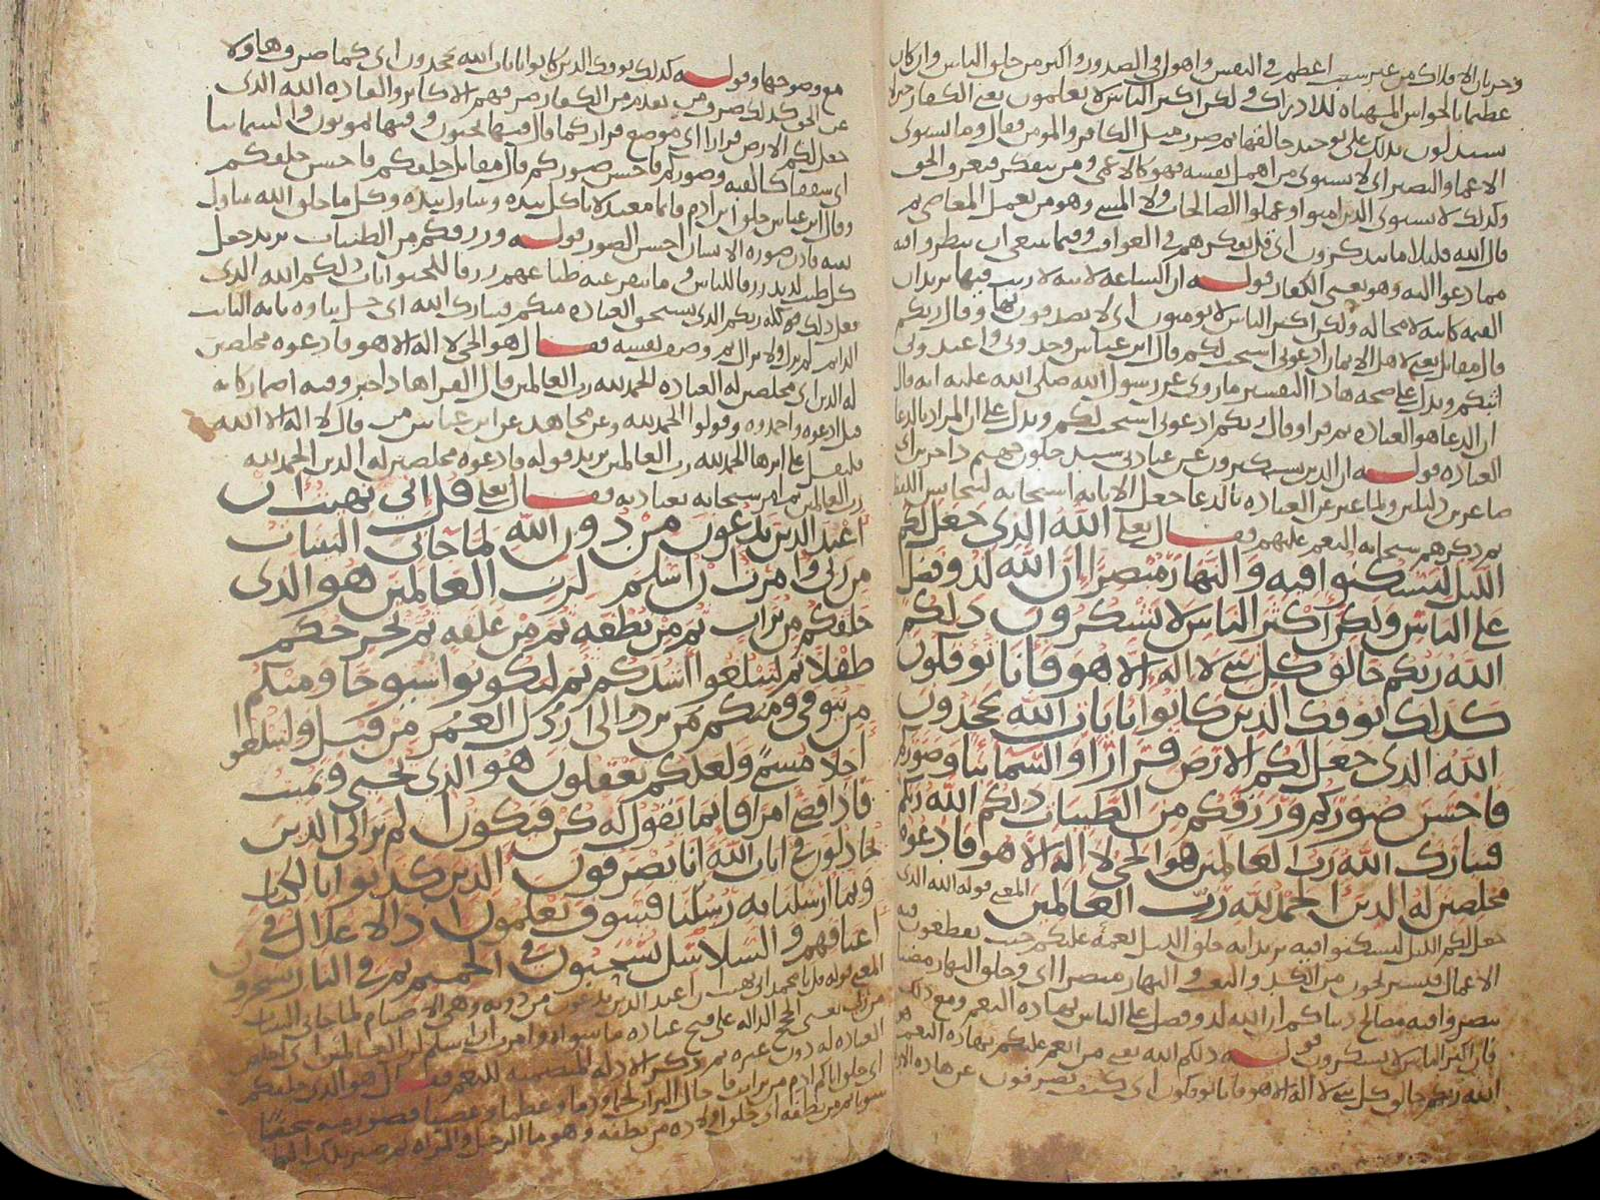 وجريان الافلاك من غير سبب اعظم في النفس واهول في الصدور واكبر من خلق الناس وان كان
عظيما بالحواس المهياه للادراك ولكن اكثر الناس لا يعلمون يعني الكفار حين لا
يستدلون بذلك على توحيد خالقها ثم ضرب مثل الكافر والمومن فقال وما يستوى
الاعما والبصير اى لا يستوى من اهمل نفسه فهو كالاعمى ومن يتفكر فيعرف الحق
وكذلك لا يستوى الذين امنوا وعملوا الصالحات ولا المسى وهو من يعمل المعاصي ثم
قال الله قليلا ما تتذكرون اى قل تفكرهم في العواقب وفيما ينبغي ان ينظروا فيه
مما دعوا اليه وهو يعني الكفار قوله ان الساعه لاتيه لا ريب فيها يريد ان
القيمه كاينه لا محاله ولكن اكثر الناس لا يومنون اى لا يصدقون بها وقال ربكم
قال مقاتل يعني لاهل الايمان ادعوني استجب لكم قال ابن عباس وحدوني واعبدوني
اثبكم ويدل على صحه هاذا التفسير ما روى عن رسول الله صلى الله عليه انه قال
ان الدعا هو العباده ثم قرا وقال ربكم ادعوني استجب لكم ويدل على ان المراد بالدعا
العباده قوله ان الذين يستكبرون عن عبادتي سيدخلون جهنم داخرين اى
صاغرين ذليلين ولما عبر عن العباده بالدعا جعل الاثابه استجابه ليتجانس اللفظ
ثم ذكرهم سبحانه النعم عليهم فقال تعلى الله الذى جعل لكم
الليل لتسكنوا فيه والنهار مبصرا ان الله لذو فضل
على الناس ولكن اكثر الناس لا يشكرون ذلكم
الله ربكم خالق كل شي لا اله الا هو فانا توفكون
كذلك يوفك الذين كانوا بايات الله يجحدون
الله الذى جعل لكم الارض قرارا والسما بنا وصوركم
فاحسن صوركم ورزقكم من الطيبات ذلكم الله ربكم
فتبارك الله رب العالمين هو الحي لا اله الا هو فادعوه
مخلصين له الدين الحمد لله رب العالمين المعنى قوله الله الذى
جعل لكم الليل لتسكنوا فيه يريد انه خلق الليل نعمه عليكم حيث تقطعون فيه
الاعمال فتستريحون من الكد والتعب والنهار مبصرا اى وخلق النهار مضيا
تبصروا فيه مصالح دنياكم ان الله لذو فضل على الناس بهاذه النعم ومع ذلك
فان اكثر الناس لا يشكرون قوله ذلكم الله يعني من انعم عليكم بهاذه النعم هو
الله ربكم خالق كل شي لا اله الا هو فانا توفكون اى كيف تصرفون عن هاذه
مع وضوحها وقوله كذلك يوفك الذين كانوا بايات الله يجحدون اى كما صرف هاولا
عن الحق كذلك صرف من تقدم من الكفار ثم عرفهم الاكابر والعباده الله الذى
جعل لكم الارض قرارا اى موضع قرار كما قال فيها تحيون وفيها تموتون والسما بنا
اى سقفا كالقبه وصوركم فاحسن صوركم قال مقاتل خلقكم فاحسن خلقكم
وقال ابن عباس خلق ابن ادم قايما معتدلا ياكل بيده ويتناول بيده وكل ما خلق الله يتناول
بفيه فاذن صوره الانسان احسن الصور قوله ورزقكم من الطيبات يريد جعل
كل طيب لذيذ رزقا للناس وما تنفر عنه طباعهم رزقا للحيوانات ذلكم الله الذى
فعل ذلك كله ربكم الذى يستحق العباده منكم فتبارك الله اى جل بناوه بانه الثابت
الدايم لم يزل ولا يزال ثم وصف نفسه فقال هو الحي لا اله الا هو فادعوه مخلصين
له الدين اى مخلصين له العباده الحمد لله رب العالمين قال الفرا هاذا خبر وفيه اضمار كانه
قيل ادعوه واحمدوه وقولوا الحمد لله وعن مجاهد عن ابن عباس من قال لا اله الا الله
فليقل على اثرها الحمد لله رب العالمين يريد قوله فادعوه مخلصين له الدين الحمد لله
رب العالمين ثم امر سبحانه بعبادته فقال تعلى قل اني نهيت ان
اعبد الذين تدعون من دون الله لما جاني البينات
من ربي وامرت ان اسلم لرب العالمين هو الذى
خلقكم من تراب ثم من نطفه ثم من علقه ثم يخرجكم
طفلا ثم لتبلغوا اشدكم ثم لتكونوا شيوخا ومنكم
من يتوفى ومنكم من يرد الى ارذل العمر من قبل ولتبلغوا
اجلا مسمى ولعلكم تعقلون هو الذى يحيي ويميت
فاذا قضى امرا فانما يقول له كن فيكون الم تر الى الذين
يجادلون في ايات الله انا يصرفون الذين كذبوا بالكتاب
وبما ارسلنا به رسلنا فسوف يعلمون اذ الاغلال في
اعناقهم والسلاسل يسحبون في الحميم ثم في النار يسجرون
المعنى قوله قل يا محمد اني نهيت ان اعبد الذين تدعون من دونه وهي الاصنام لما جاني البينات
من ربي يعني الحجج الداله على قبح عباده ما سواه وامرت ان اسلم لرب العالمين اى اخلص
العباده له دون غيره ثم ذكر الادله المتضمنه للنعم فقال هو الذى خلقكم
اى خلق اباكم ادم من تراب فاحال التراب لحما ودما وعظما وعصبا فصوره
سويا ثم من نطفه اى خلق اولاده من نطفه وهو ما الرجل والمراه ثم صير ذلك الما